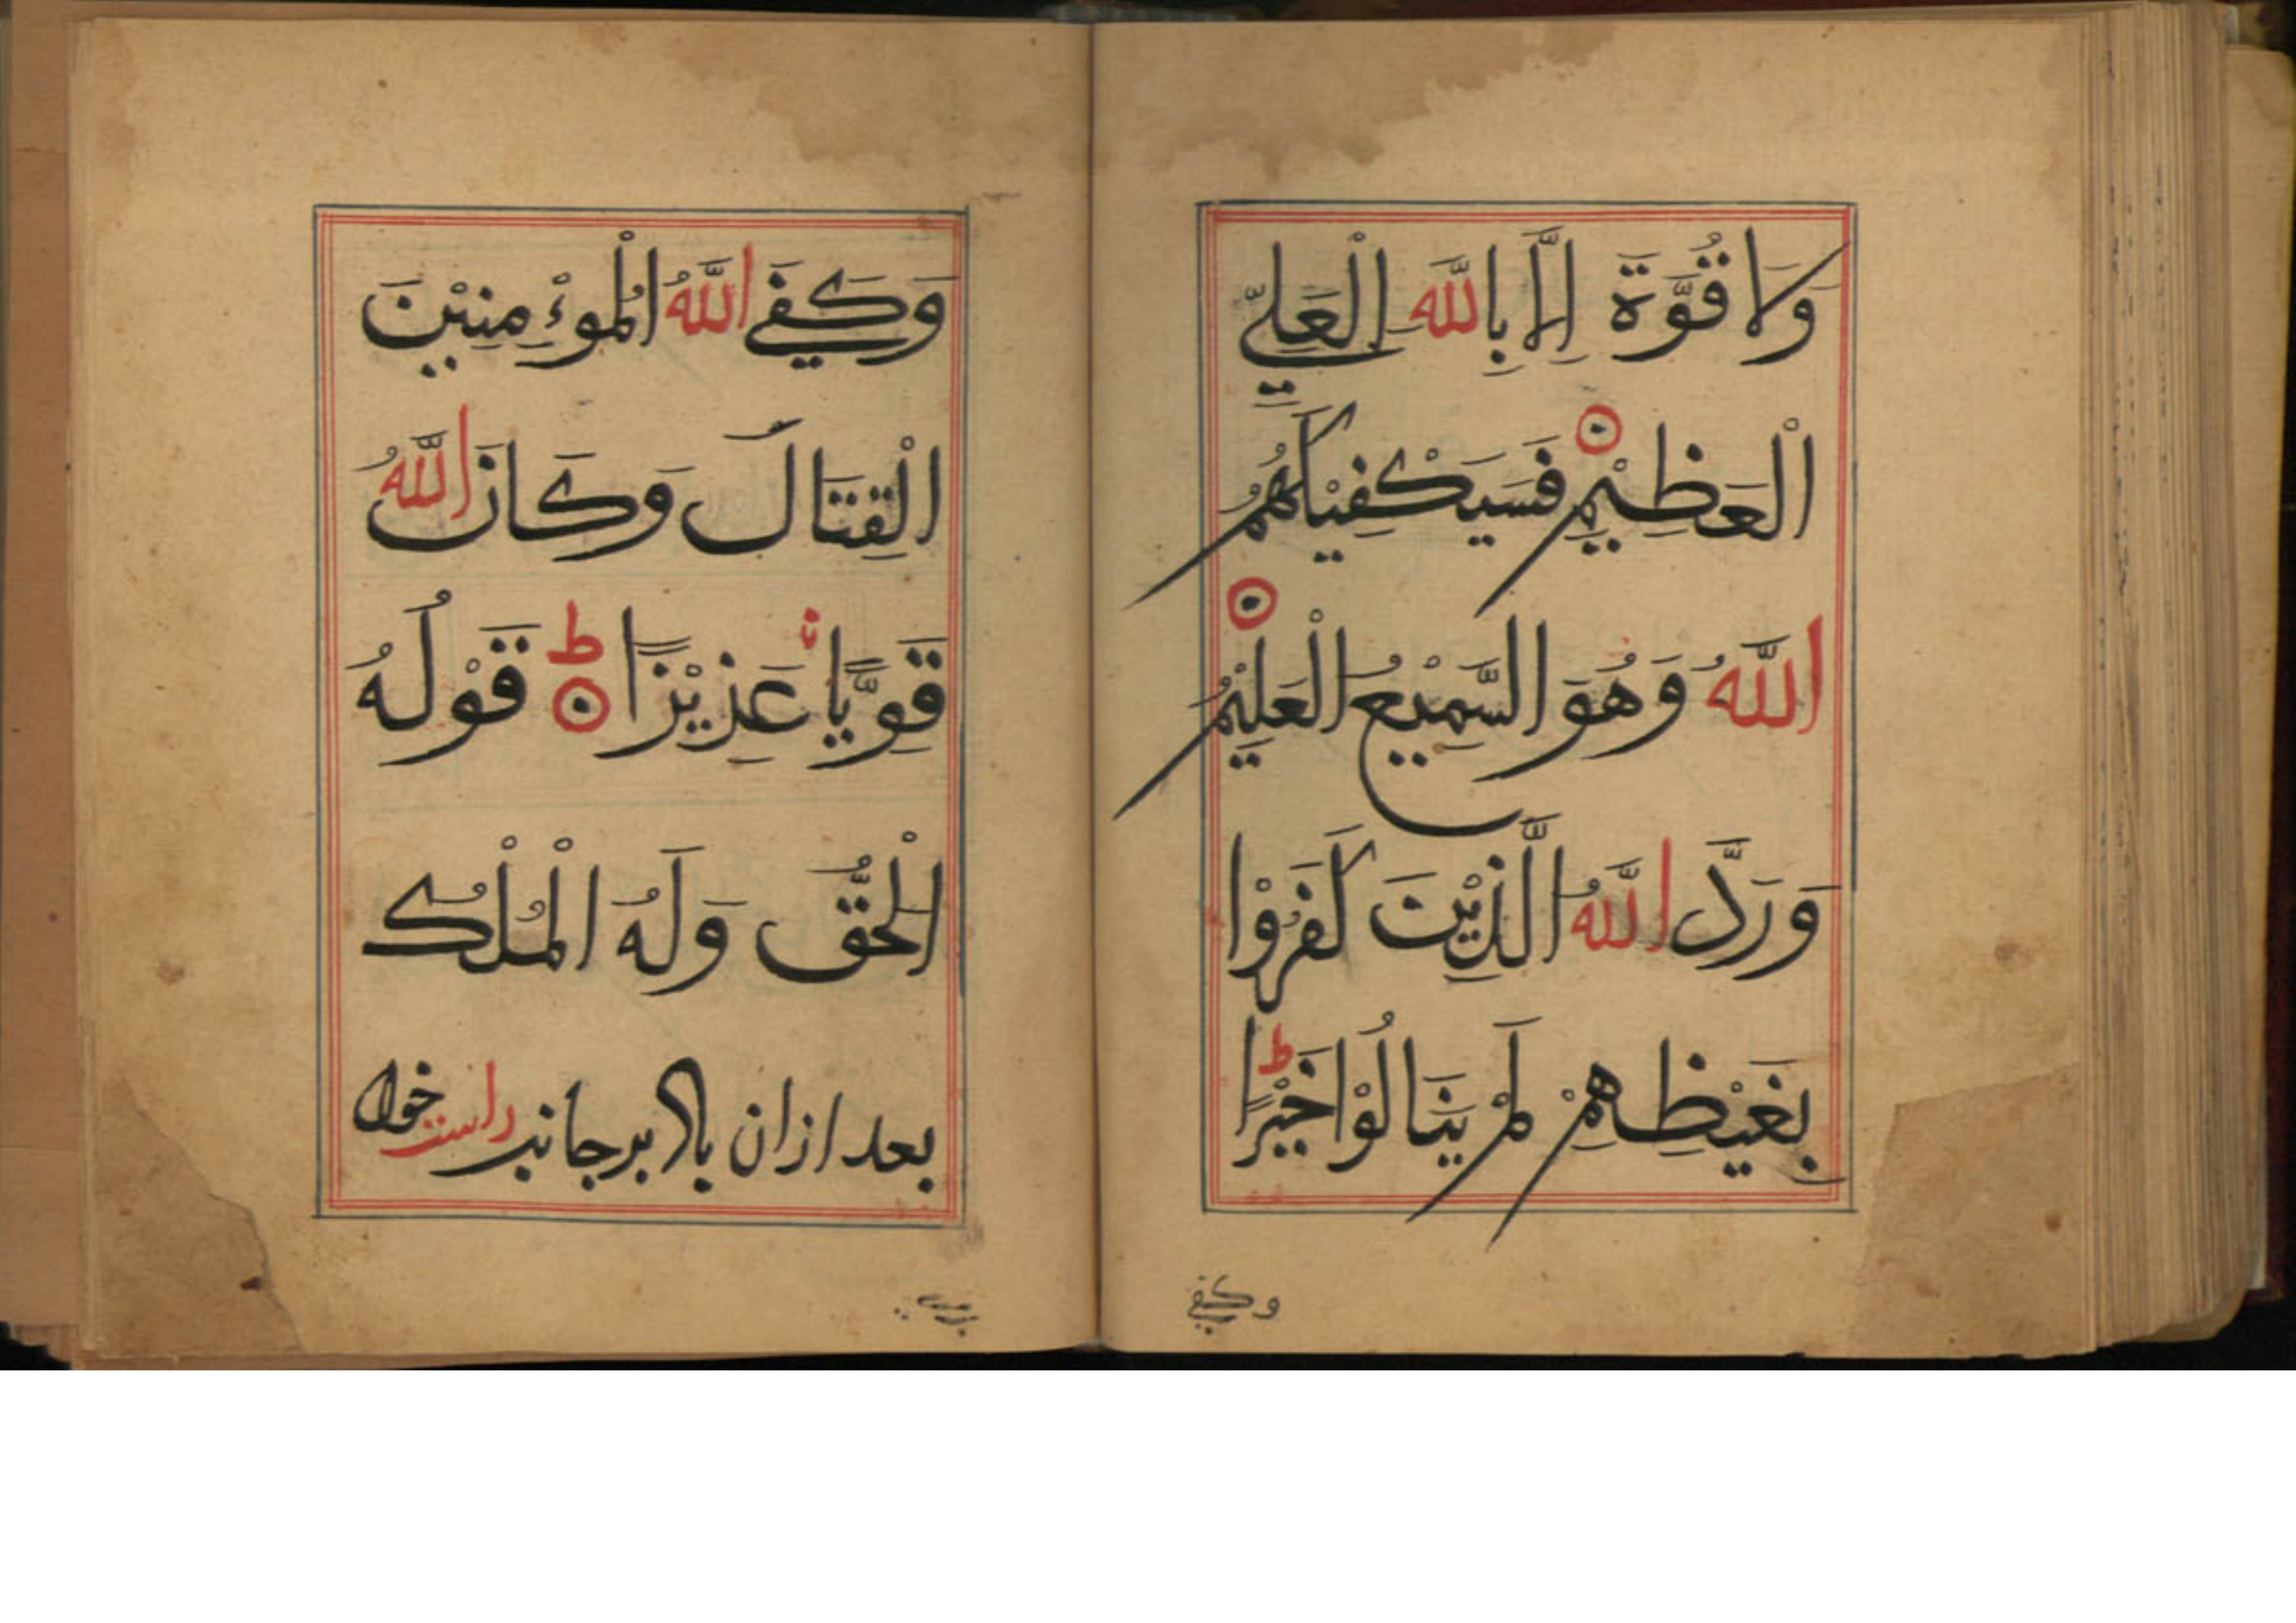 وَلَا قُوَّةَ اِلَّا بِاللّٰهِ الْعَلِيِّ
الْعَظِيْمِ فَسَيَكْفِيْكَهُمُ
اللّٰهُ وَهُوَ السَّمِيْعُ الْعَلِيْمُ
وَرَدَّ اللّٰهُ الَّذِيْنَ كَفَرُوْا
بِغَيْظِهِمْ لَمْ يَنَالُوْا خَيْرًا ط
وكفي
وَكَفَي اللّٰهُ الْمُوءْمِنِيْنَ
الْقِتَالَ وَكَانَ اللّٰهُ
قَوِيًّا عَزِيْزًا ط قَوْلُهُ
الْحَقُّ وَلَهُ الْمُلْكُ
بعد ازان باد بر جانب راست خود